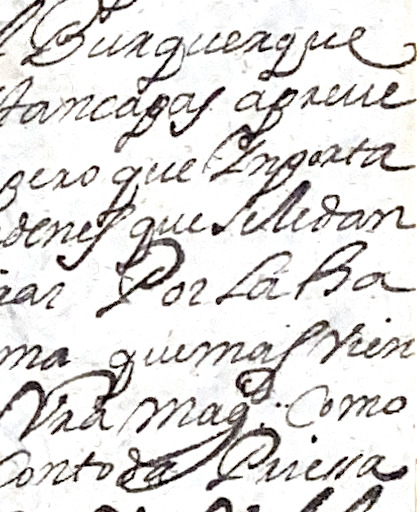 Burquerque
stancagas aprue
pero que Ynporta
denes que se le dan
rar Por La Ba
ma que mas vien
Vra Mag.d Como
Con toda Priessa